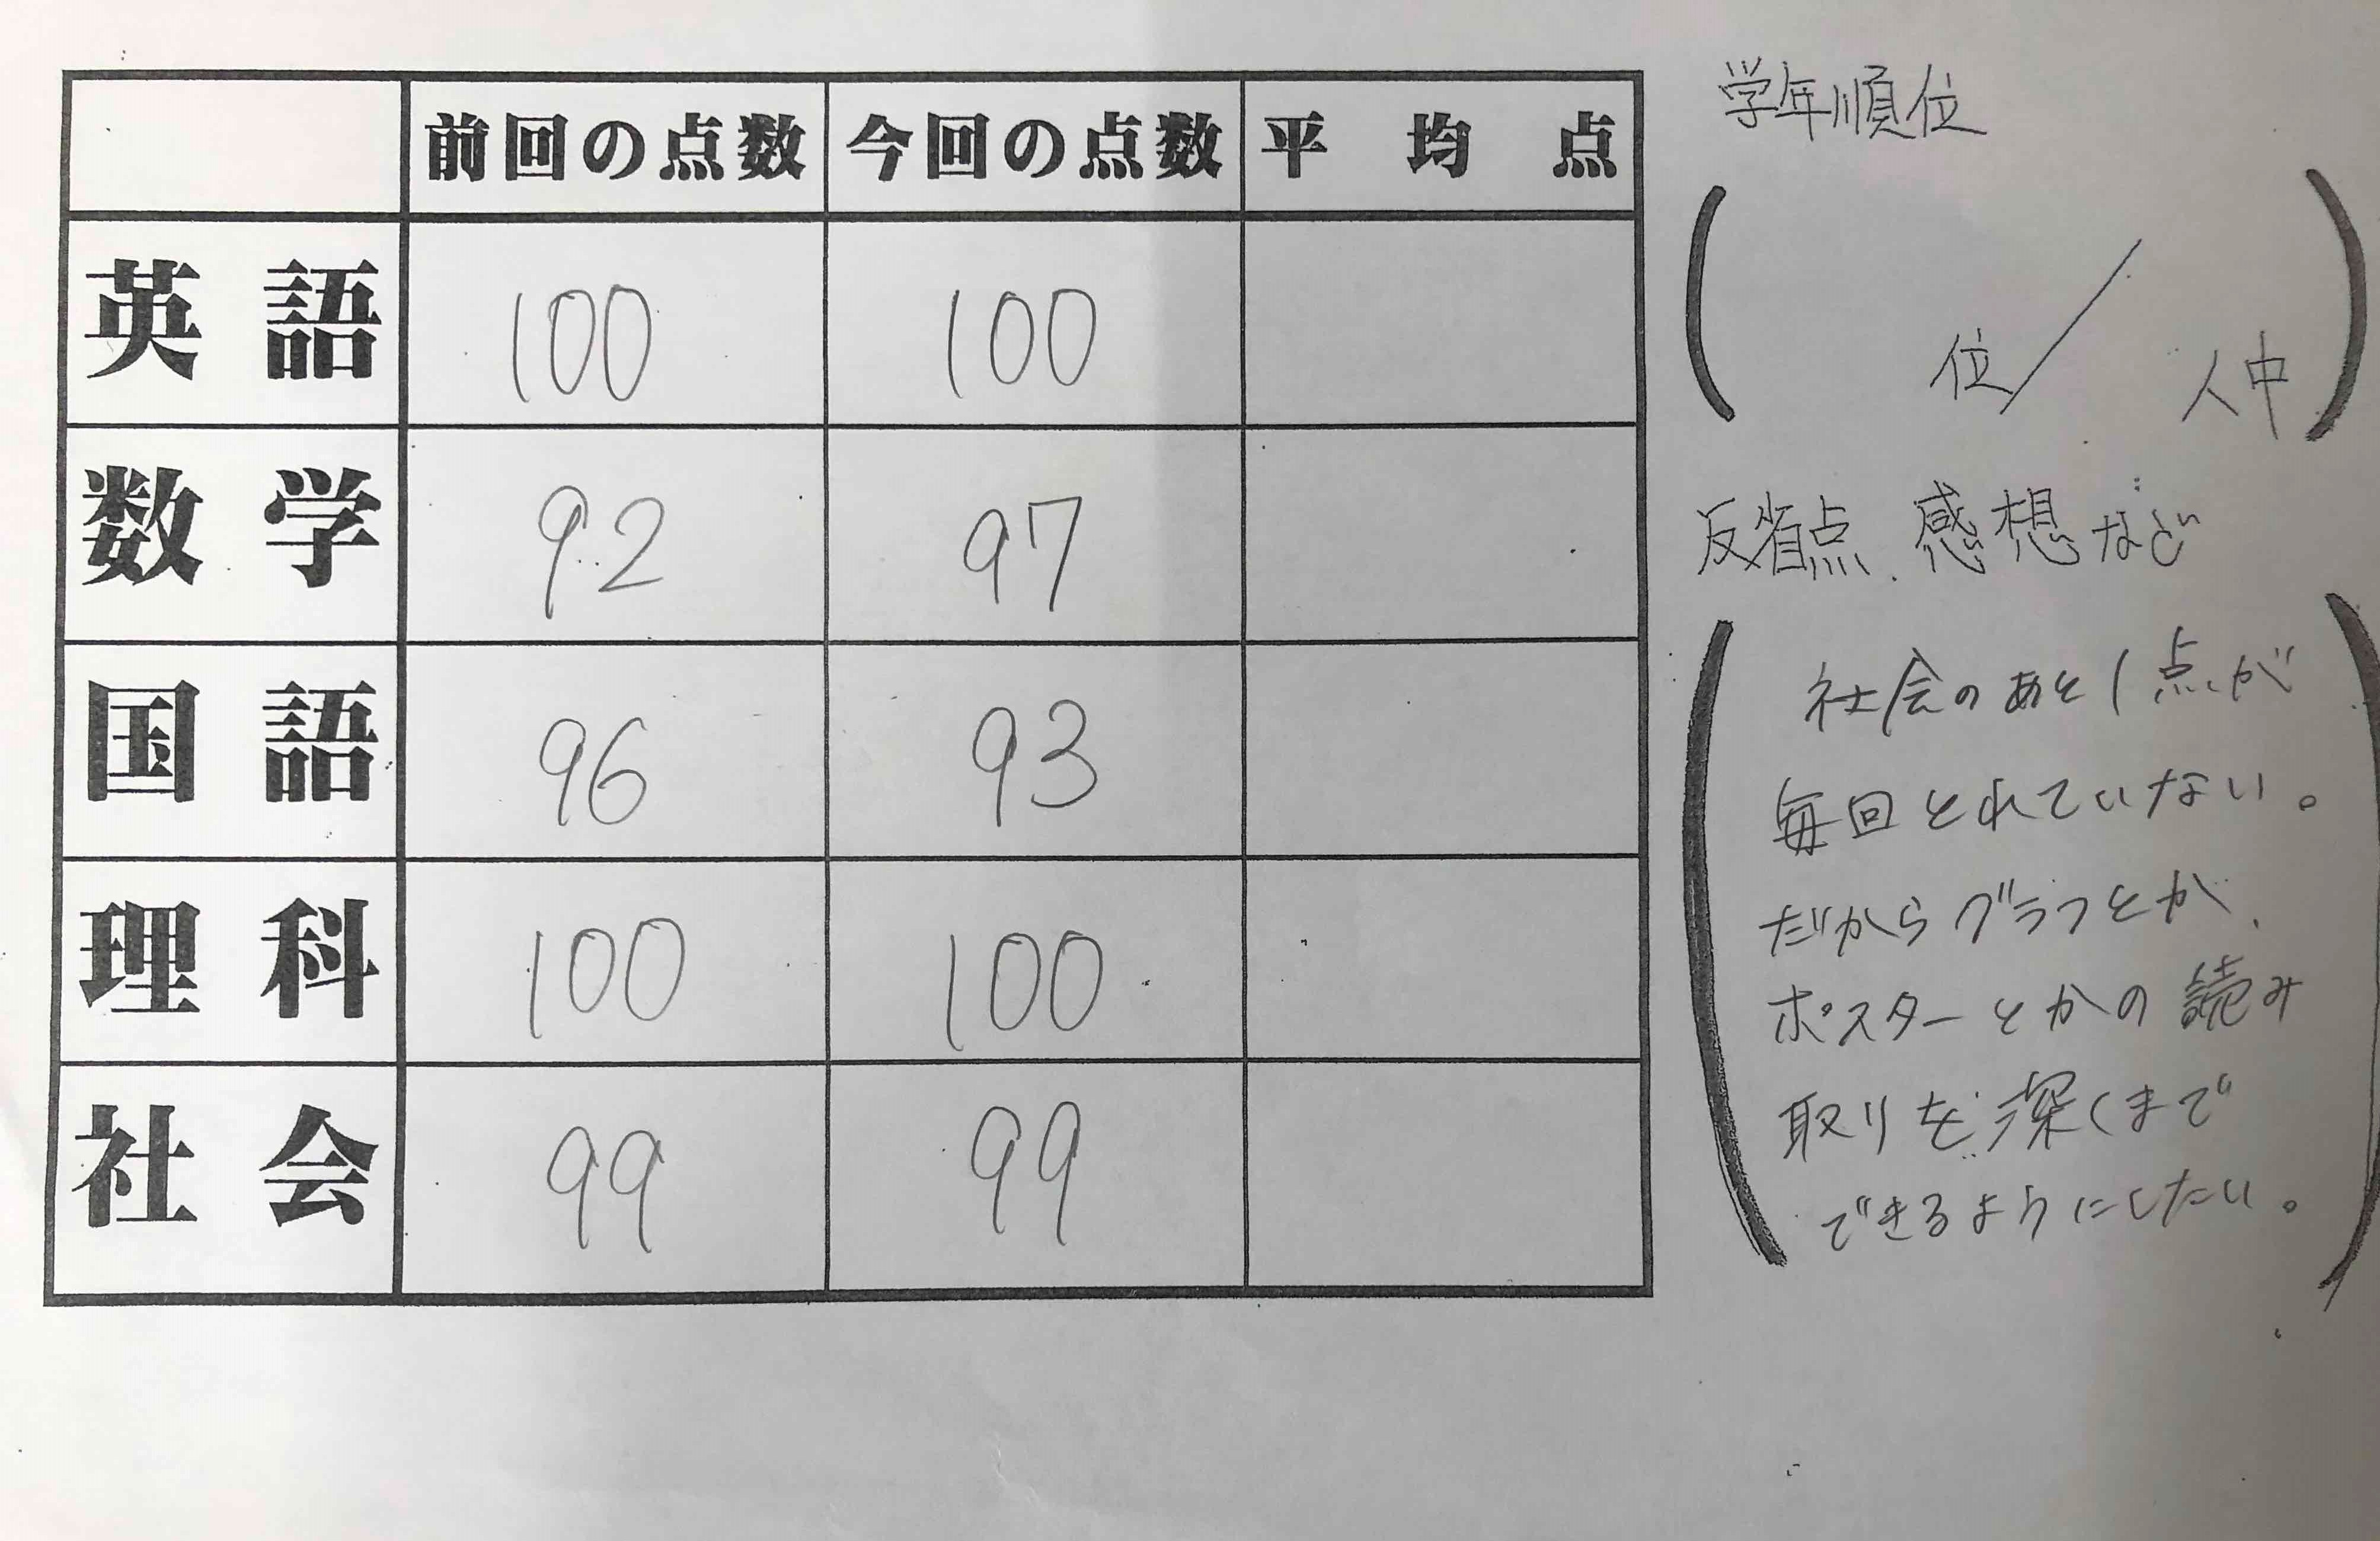 前回の点数 今回の点数 平均点
英語 100 100
数学 92 97
国語 96 93
理科 100 100
社会 99 99
学年順位
( 位/ 人中)
反省点、感想など
社会のあと1点が
毎回とれていない。
だからグラフとか、
ポスターとかの読み
取りを深くまで
できるようにしたい。